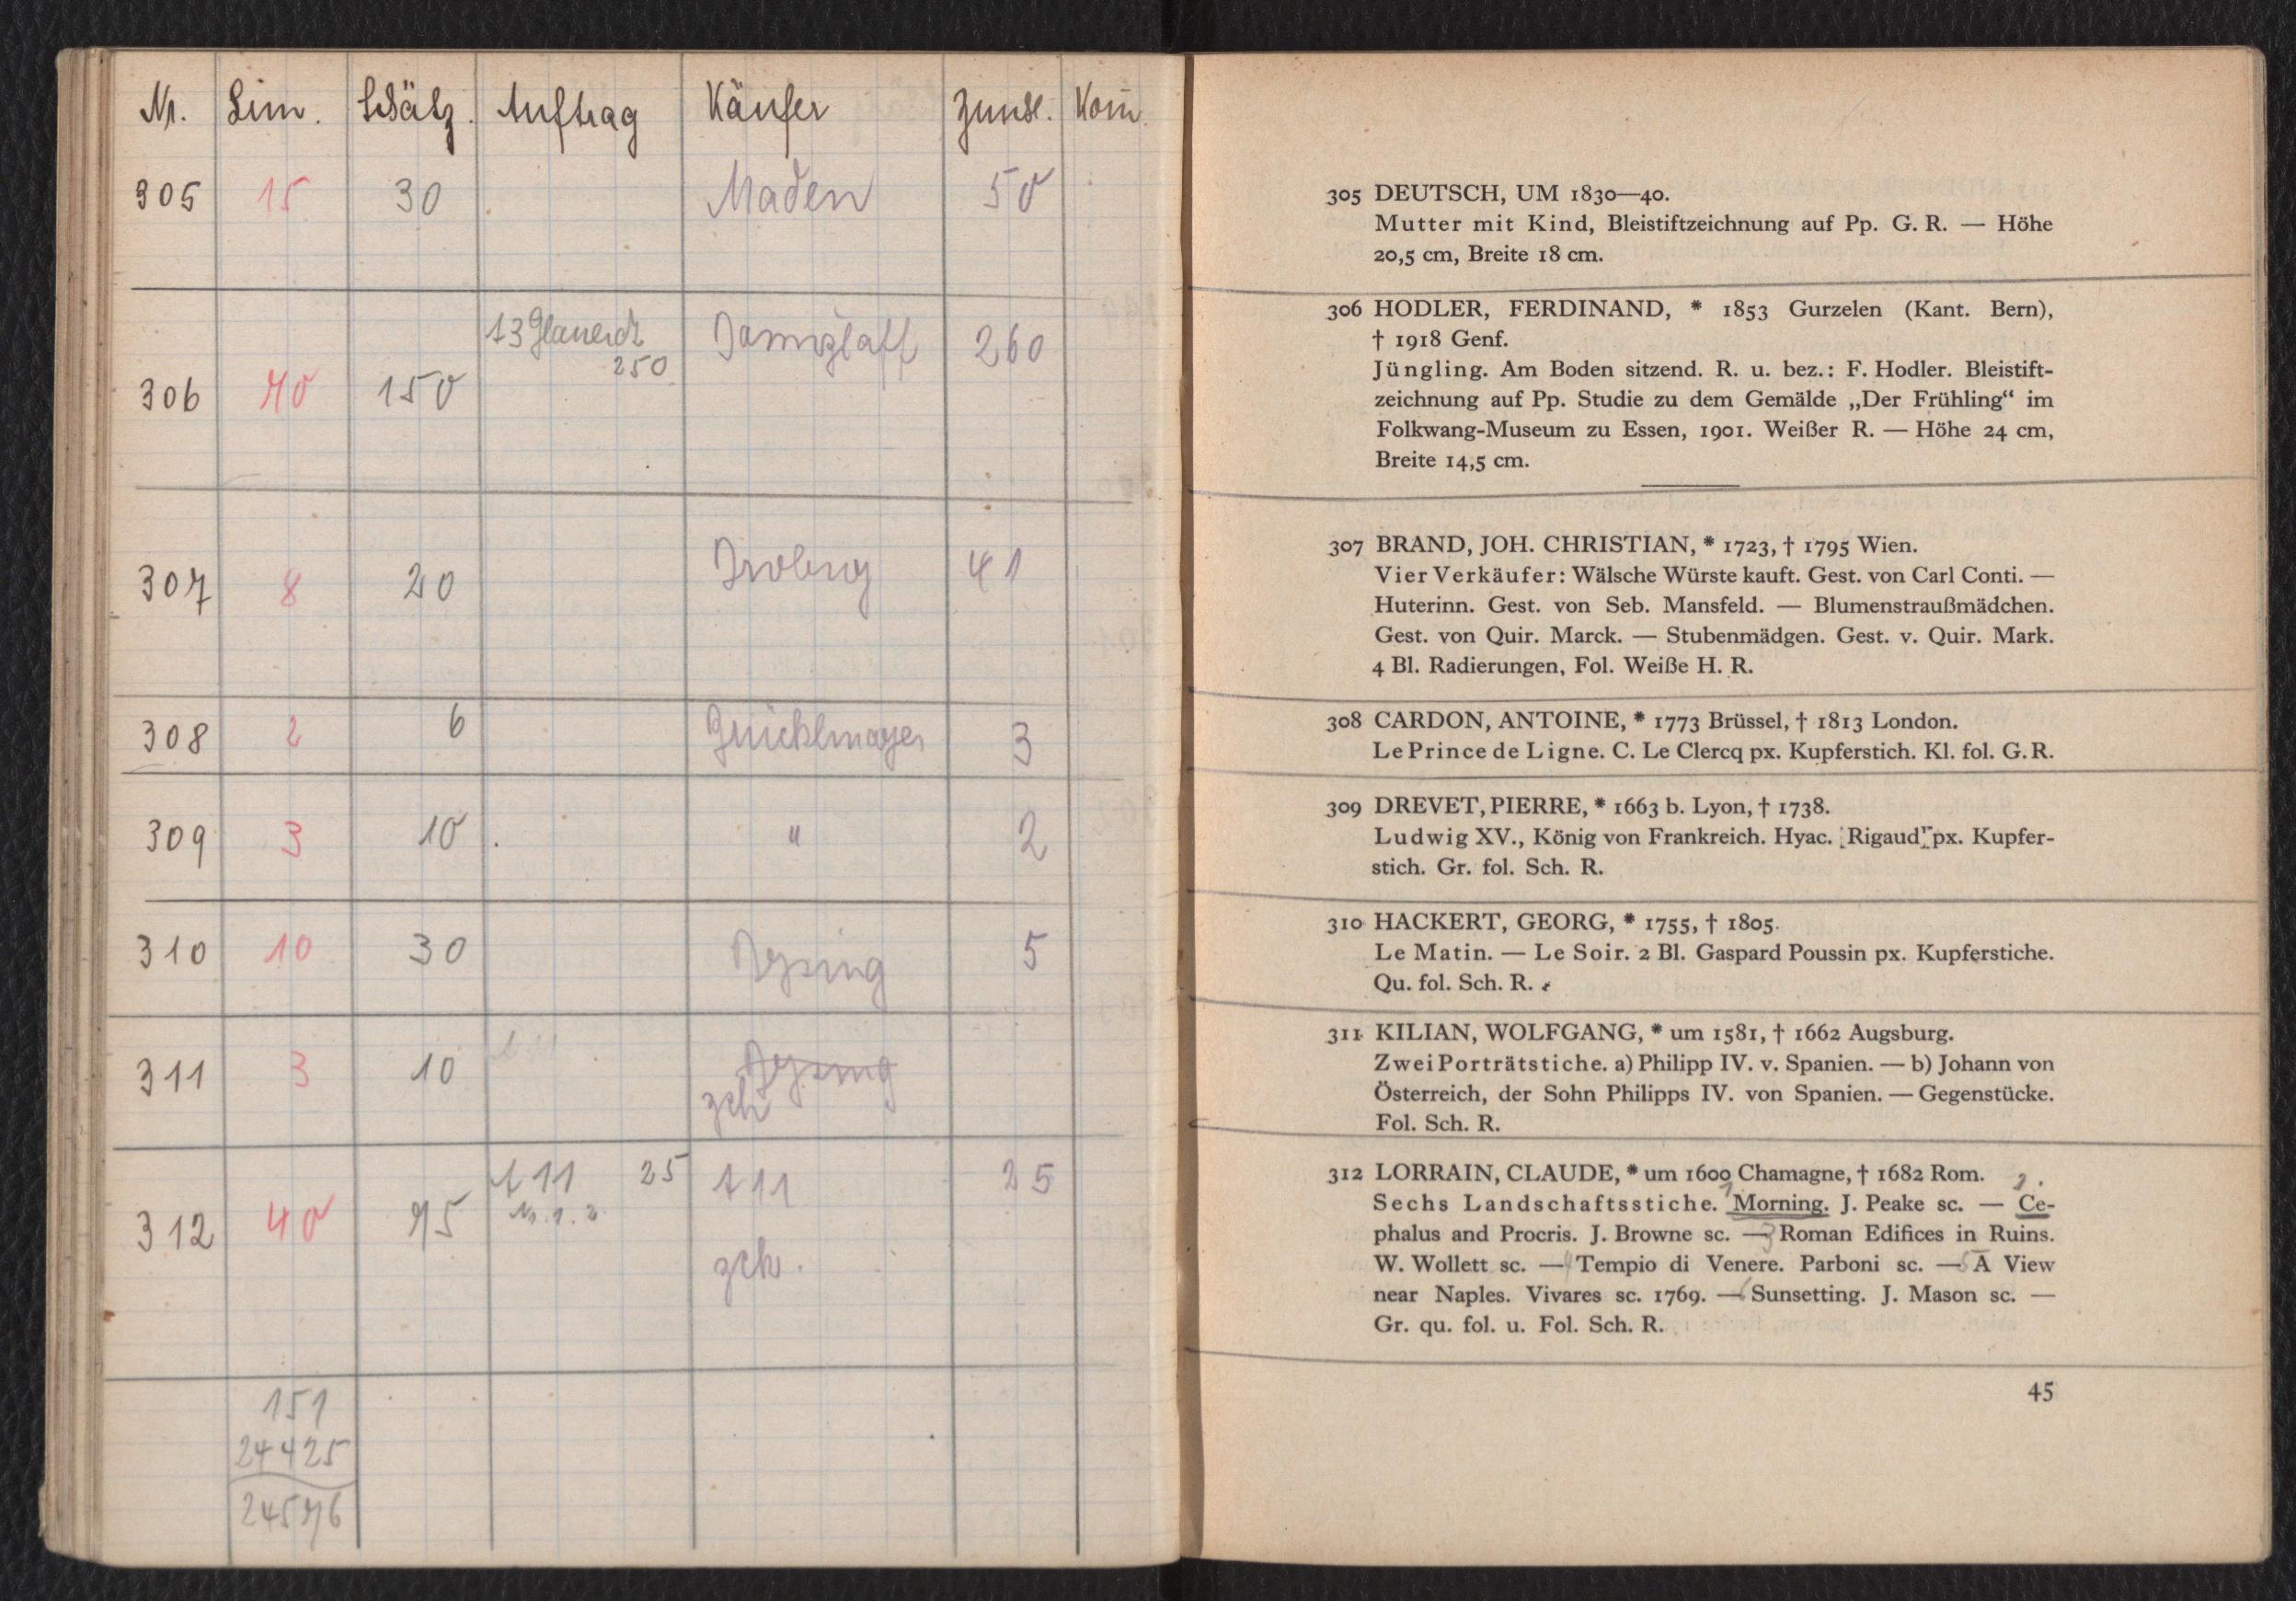 Nr. Lim. Schätz. Auftrag Käufer Zuschl. Kom̄.
305 15 30 Maden 50
13 250
306 70 150 260
307 8 20 41
308 2 6 3
309 3 10 " 2
310 10 30 5
311 3 10 zch
312 40 75 A 11 25 A 11 25
Nr. 1. 2
zch.
151
24425
24576
305 DEUTSCH, UM 1830—40.
Mutter mit Kind, Bleistiftzeichnung auf Pp. G. R. — Höhe
20,5 cm, Breite 18 cm.
306 HODLER, FERDINAND, * 1853 Gurzelen (Kant. Bern),
† 1918 Genf.
Jüngling. Am Boden sitzend. R. u. bez.: F. Hodler. Bleistift-
zeichnung auf Pp. Studie zu dem Gemälde „Der Frühling“ im
Folkwang-Museum zu Essen, 1901. Weißer R. — Höhe 24 cm,
Breite 14,5 cm.
307 BRAND, JOH. CHRISTIAN, * 1723, † 1795 Wien.
Vier Verkäufer: Wälsche Würste kauft. Gest. von Carl Conti. —
Huterinn. Gest. von Seb. Mansfeld. — Blumenstraußmädchen.
Gest. von Quir. Marck. — Stubenmädgen. Gest. v. Quir. Mark.
4 Bl. Radierungen, Fol. Weiße H. R.
308 CARDON, ANTOINE, * 1773 Brüssel, † 1813 London.
Le Prince de Ligne. C. Le Clercq px. Kupferstich. Kl. fol. G. R.
309 DREVET, PIERRE, * 1663 b. Lyon, † 1738.
Ludwig XV., König von Frankreich. Hyac. Rigaud px. Kupfer-
stich. Gr. fol. Sch. R.
310 HACKERT, GEORG, * 1755, † 1805.
Le Matin. — Le Soir. 2 Bl. Gaspard Poussin px. Kupferstiche.
Qu. fol. Sch. R.
311 KILIAN, WOLFGANG, * um 1581, † 1662 Augsburg.
Zwei Porträtstiche. a) Philipp IV. v. Spanien. — b) Johann von
Österreich, der Sohn Philipps IV. von Spanien. — Gegenstücke.
Fol. Sch. R.
312 LORRAIN, CLAUDE, * um 1600 Chamagne, † 1682 Rom.
2.
Sechs Landschaftsstiche. 1 Morning. J. Peake sc. — Ce-
phalus and Procris. J. Browne sc. — 3 Roman Edifices in Ruins.
W. Wollett sc. — 4 Tempio di Venere. Parboni sc. — 5 A View
near Naples. Vivares sc. 1769. — 6 Sunsetting. J. Mason sc. —
Gr. qu. fol. u. Fol. Sch. R.
45